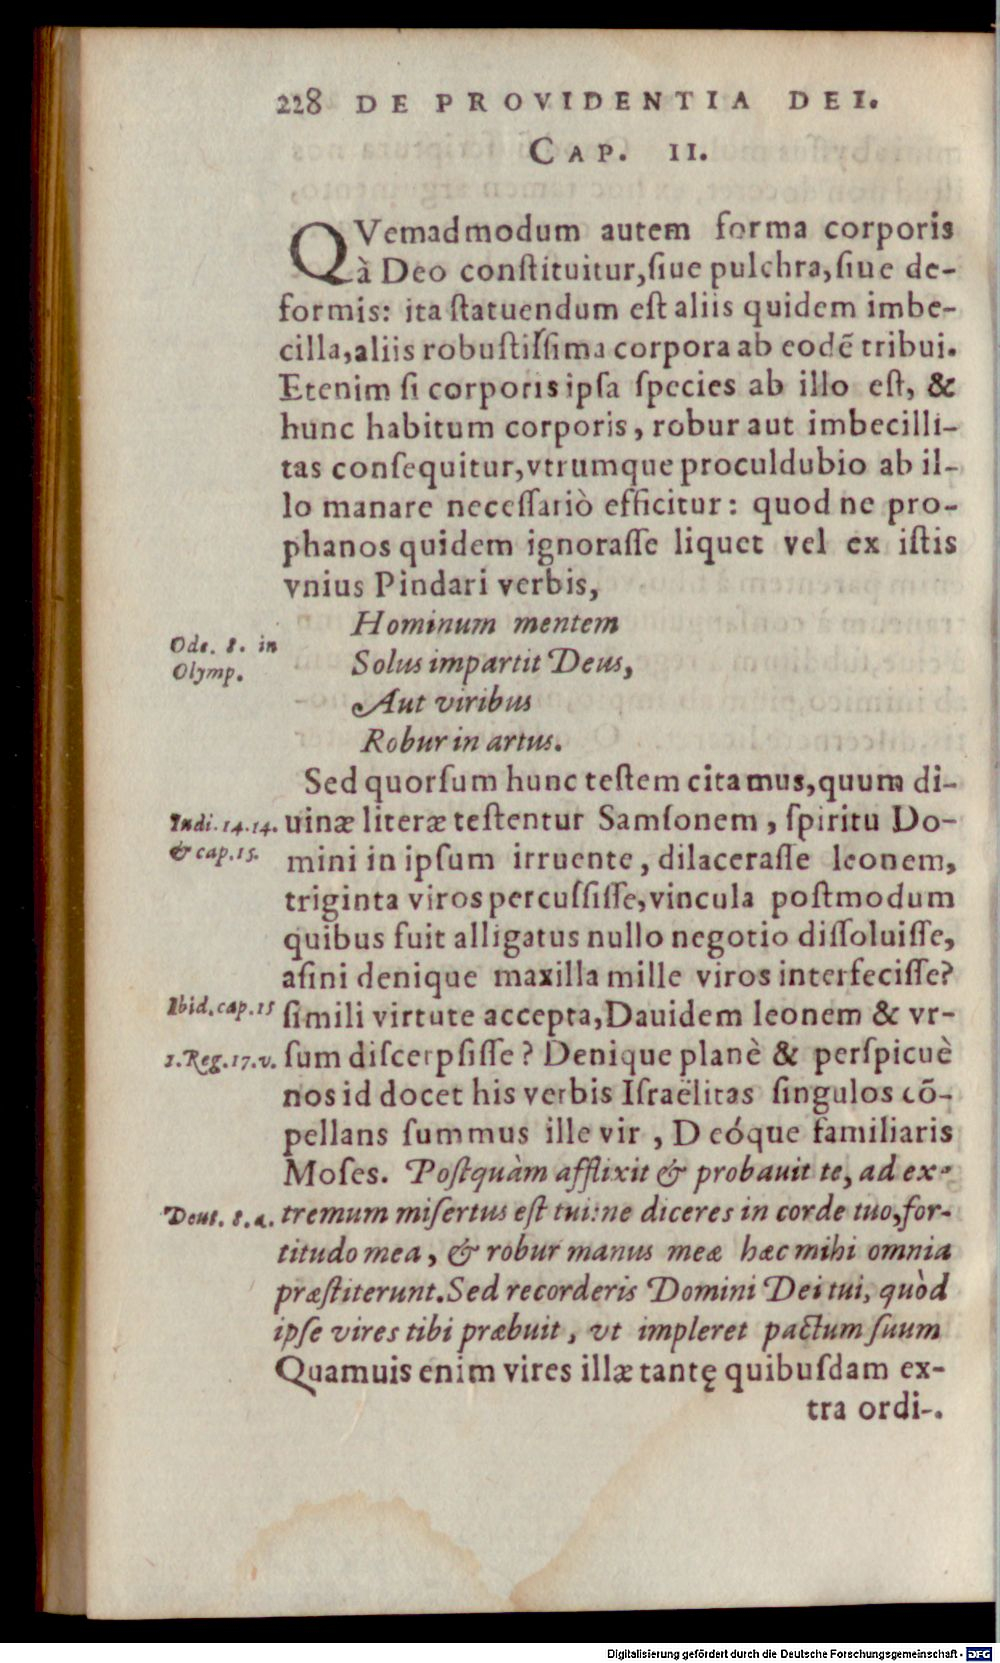 228 DE PROVIDENTIA DEI.
CAP. II.
QVemadmodum autem forma corporis
à Deo conſtituitur,ſiue pulchra,ſiue de-
formis: ita ſtatuendum eſt aliis quidem imbe-
cilla,aliis robuſtiſſima corpora ab eodē tribui.
Etenim ſi corporis ipſa ſpecies ab illo eſt, &
hunc habitum corporis, robur aut imbecilli-
tas conſequitur,vtrumque proculdubio ab il-
lo manare neceſſariò efficitur: quod ne pro-
phanos quidem ignoraſſe liquet vel ex iſtis
vnius Pindari verbis,
Hominum mentem
Ode. 8. in
Olymp.
Solus impartit Deus,
Aut viribus
Robur in artus.
Sed quorſum hunc teſtem citamus,quum di-
Iudi. 14.14.
& cap.15.
uinæ literæ teſtentur Samſonem, ſpiritu Do-
mini in ipſum irruente, dilaceraſſe leonem,
triginta viros percuſſiſſe,vincula poſtmodum
quibus fuit alligatus nullo negotio diſſoluiſſe,
aſini denique maxilla mille viros interfeciſſe?
Ibid.cap.15
ſimili virtute accepta,Dauidem leonem & vr-
1.Reg.17.v.
ſum diſcerpſiſſe? Denique planè & perſpicuè
nos id docet his verbis Iſraëlitas ſingulos cō-
pellans ſummus ille vir, Deóque familiaris
Moſes. Poſtquàm afflixit & probauit te, ad ex-
Deut. 8.a.
tremum miſertus eſt tui:ne diceres in corde tuo,for-
titudo mea, & robur manus meæ hæc mihi omnia
præſtiterunt.Sed recorderis Domini Dei tui, quòd
ipſe vires tibi præbuit, vt impleret pactum ſuum
Quamuis enim vires illæ tantę quibuſdam ex-
tra ordi-.
Digitalisierung gefördert durch die Deutsche Forschungsgemeinschaft - DFG